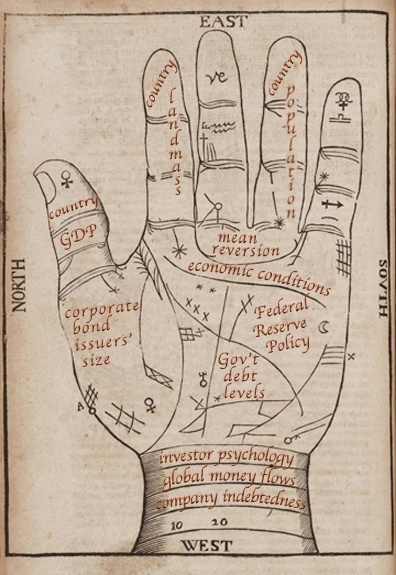 EAST
country
landmass
ve
country
population
country
GDP
mean
reversion
economic conditions
NORTH
SOVTH
corporate
bond
issuers'
size
Federal
Reserve
Policy
Gov't
debt
levels
investor psychology
global money flows
company indebtedness
10 20
WEST